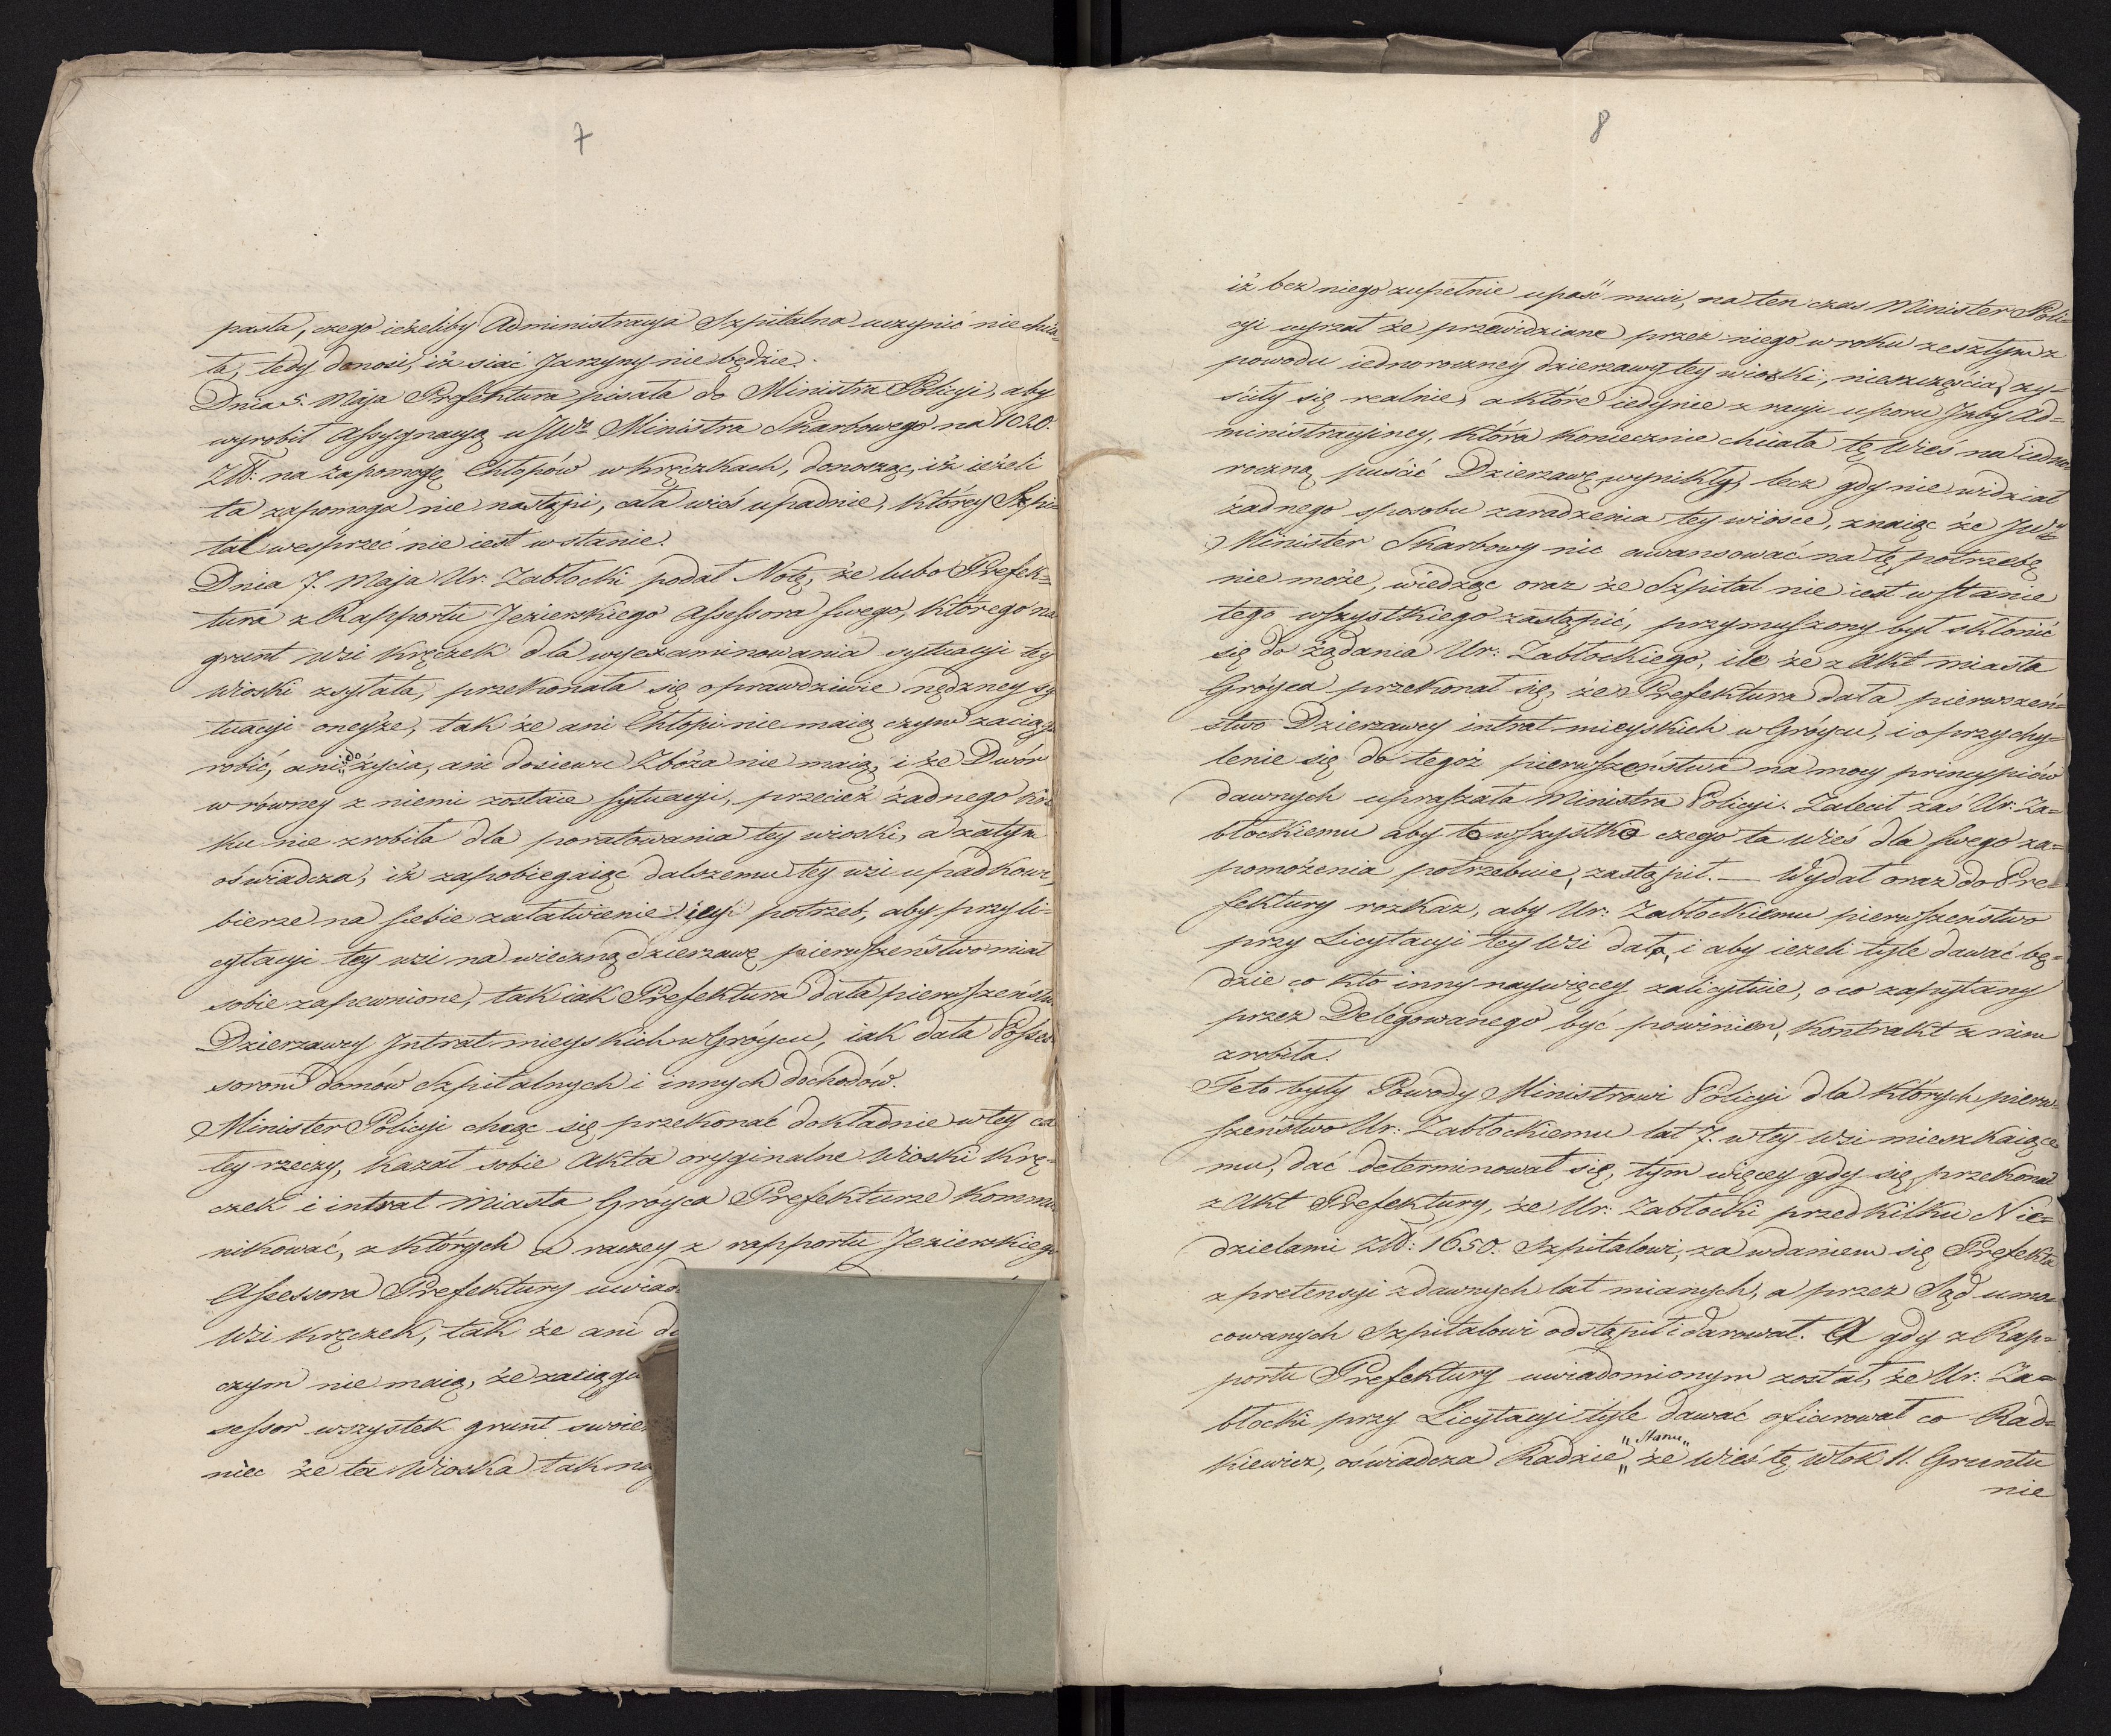 7
pasła, czego ieżeliby Administracya Szpitalna uczynić nie chcia=
ła, tedy donosi, iż siać Jarzyny nie będzie.
Dnia 5. Maja Prefektura pisała do Ministra Policyi, aby
wyrobił Assygnacyą u JWo Ministra Skarbowego na 1020.
Złł: na zapomogę Chłopów w Kręczkach, donosząc, iż ieżeli
ta zapomoga nie nastąpi, cała wieś upadnie, którey Szpi=
tal wesprzeć nie iest w stanie.
Dnia 7. Maja Ur. Zabłocki podał Notę, że lubo Prefek=
tura z Rapportu Jezierskiego Assessora swego, którego na
grunt wsi Kręczek dla wyexaminowania sytuacyi tey
Wioski zsyłała, przekonała się o prawdziwie nędzney sy
tuacyi oneyże, tak że ani Chłopi nie maią czym zaciągu
robić, ani do życia, ani dosiewu Zboża nie maią, i że Dwór
w równey z niemi zostaie sytuacyi, przecież żadnego kro
ku nie zrobiła dla poratowania tey wioski, a zatym
oświadcza, iż zapobiegaiąc dalszemu tey wsi upadkowi,
bierze na siebie załatwienie iey potrzeb, aby przy li=
cytacyi tey wsi na wieczną dzierzawę pierwszeństwo miał
sobie zapewnione, tak iak Prefektura dała pierwszeństwo
Dzierzawcy Intrat mieyskich w Gróycu, iak dała Posses
sorom domów Szpitalnych i innych dochodów.
Minister Policyi chcąc się przekonać dokładnie w tey ca
łey rzeczy, kazał sobie Akta oryginalne Wioski Krę=
czek i intrat Miasta Gróyca Prefekturze Kommu
nikować, z których a raczey z rapportu Jezierskiego
Assessora Prefektury uwiad
Wsi Kręczek, tak że ani d
czym nie maią, że zaciągu
sessor wszystek grunt swoie
niec że ta Wioska tak na
8
iż bez niego zupełnie upaść musi, na ten czas Minister Poli=
cyi uyrzał że przewidziane przez niego w roku zeszłym z
powodu iednoroczney dzierzawy tey wioski, nieszczęścia, zy=
ściły się realnie, a które iedynie z racyi uporu Izby Ad=
ministracyiney, która koniecznie chciała tę Wieś na iedno
roczną puścić Dzierzawę wynikły, lecz gdy nie widział
żadnego sposobu zaradzenia tey wiosce, znaiąc że JW
Minister Skarbowy nic awansować na tę potrzebę
nie może, wiedząc oraz że Szpital nie iest w stanie
tego wszystkiego zastąpić, przymuszony był skłonić
się do żądania Ur: Zabłockiego, ile że z Akt miasta
Gróyca przekonał się, że Prefektura dała pierwszeń=
stwo Dzierzawcy intrat mieyskich w Gróycu, i o przychy=
lenie się do tegoż pierwszeństwa na mocy pryncypiów
dawnych upraszała Ministra Policyi. Zalecił zaś Ur: Za=
błockiemu aby to wszystko czego ta Wieś dla swego za=
pomożenia potrzebuie, zastąpił. — Wydał oraz do Pre=
fektury rozkaz, aby Ur: Zabłockiemu pierwszeństwo
przy Licytacyi tey Wsi dała, i aby ieżeli tyle dawać bę=
dzie co kto inny naywięcey zalicytuie, o co zapytany
przez Delegowanego być powinien, kontrakt z nim
zrobiła.
Te to były Powody Ministrowi Policyi dla których pierw=
szeństwo Ur: Zabłockiemu lat 7. w tey Wsi mieszkaiące
mu, dać determinował się, tym więcey gdy się przekonał
z Akt Prefektury, że Ur: Zabłocki przed kilku Nie=
dzielami Złł: 1650. Szpitalowi, za wdaniem się Prefekta
z pretensyi z dawnych lat mianych, a przez Sąd umo=
cowanych Szpitalowi odstąpił i darował. A gdy z Rap=
portu Prefektury uwiadomionym został, że Ur: Za=
błocki przy Licytacyi tyle dawać ofiarował co Rad=
kiewicz, oświadcza Radzie „Stanu„ że Wieś tę Włok 11. Gruntu
nie